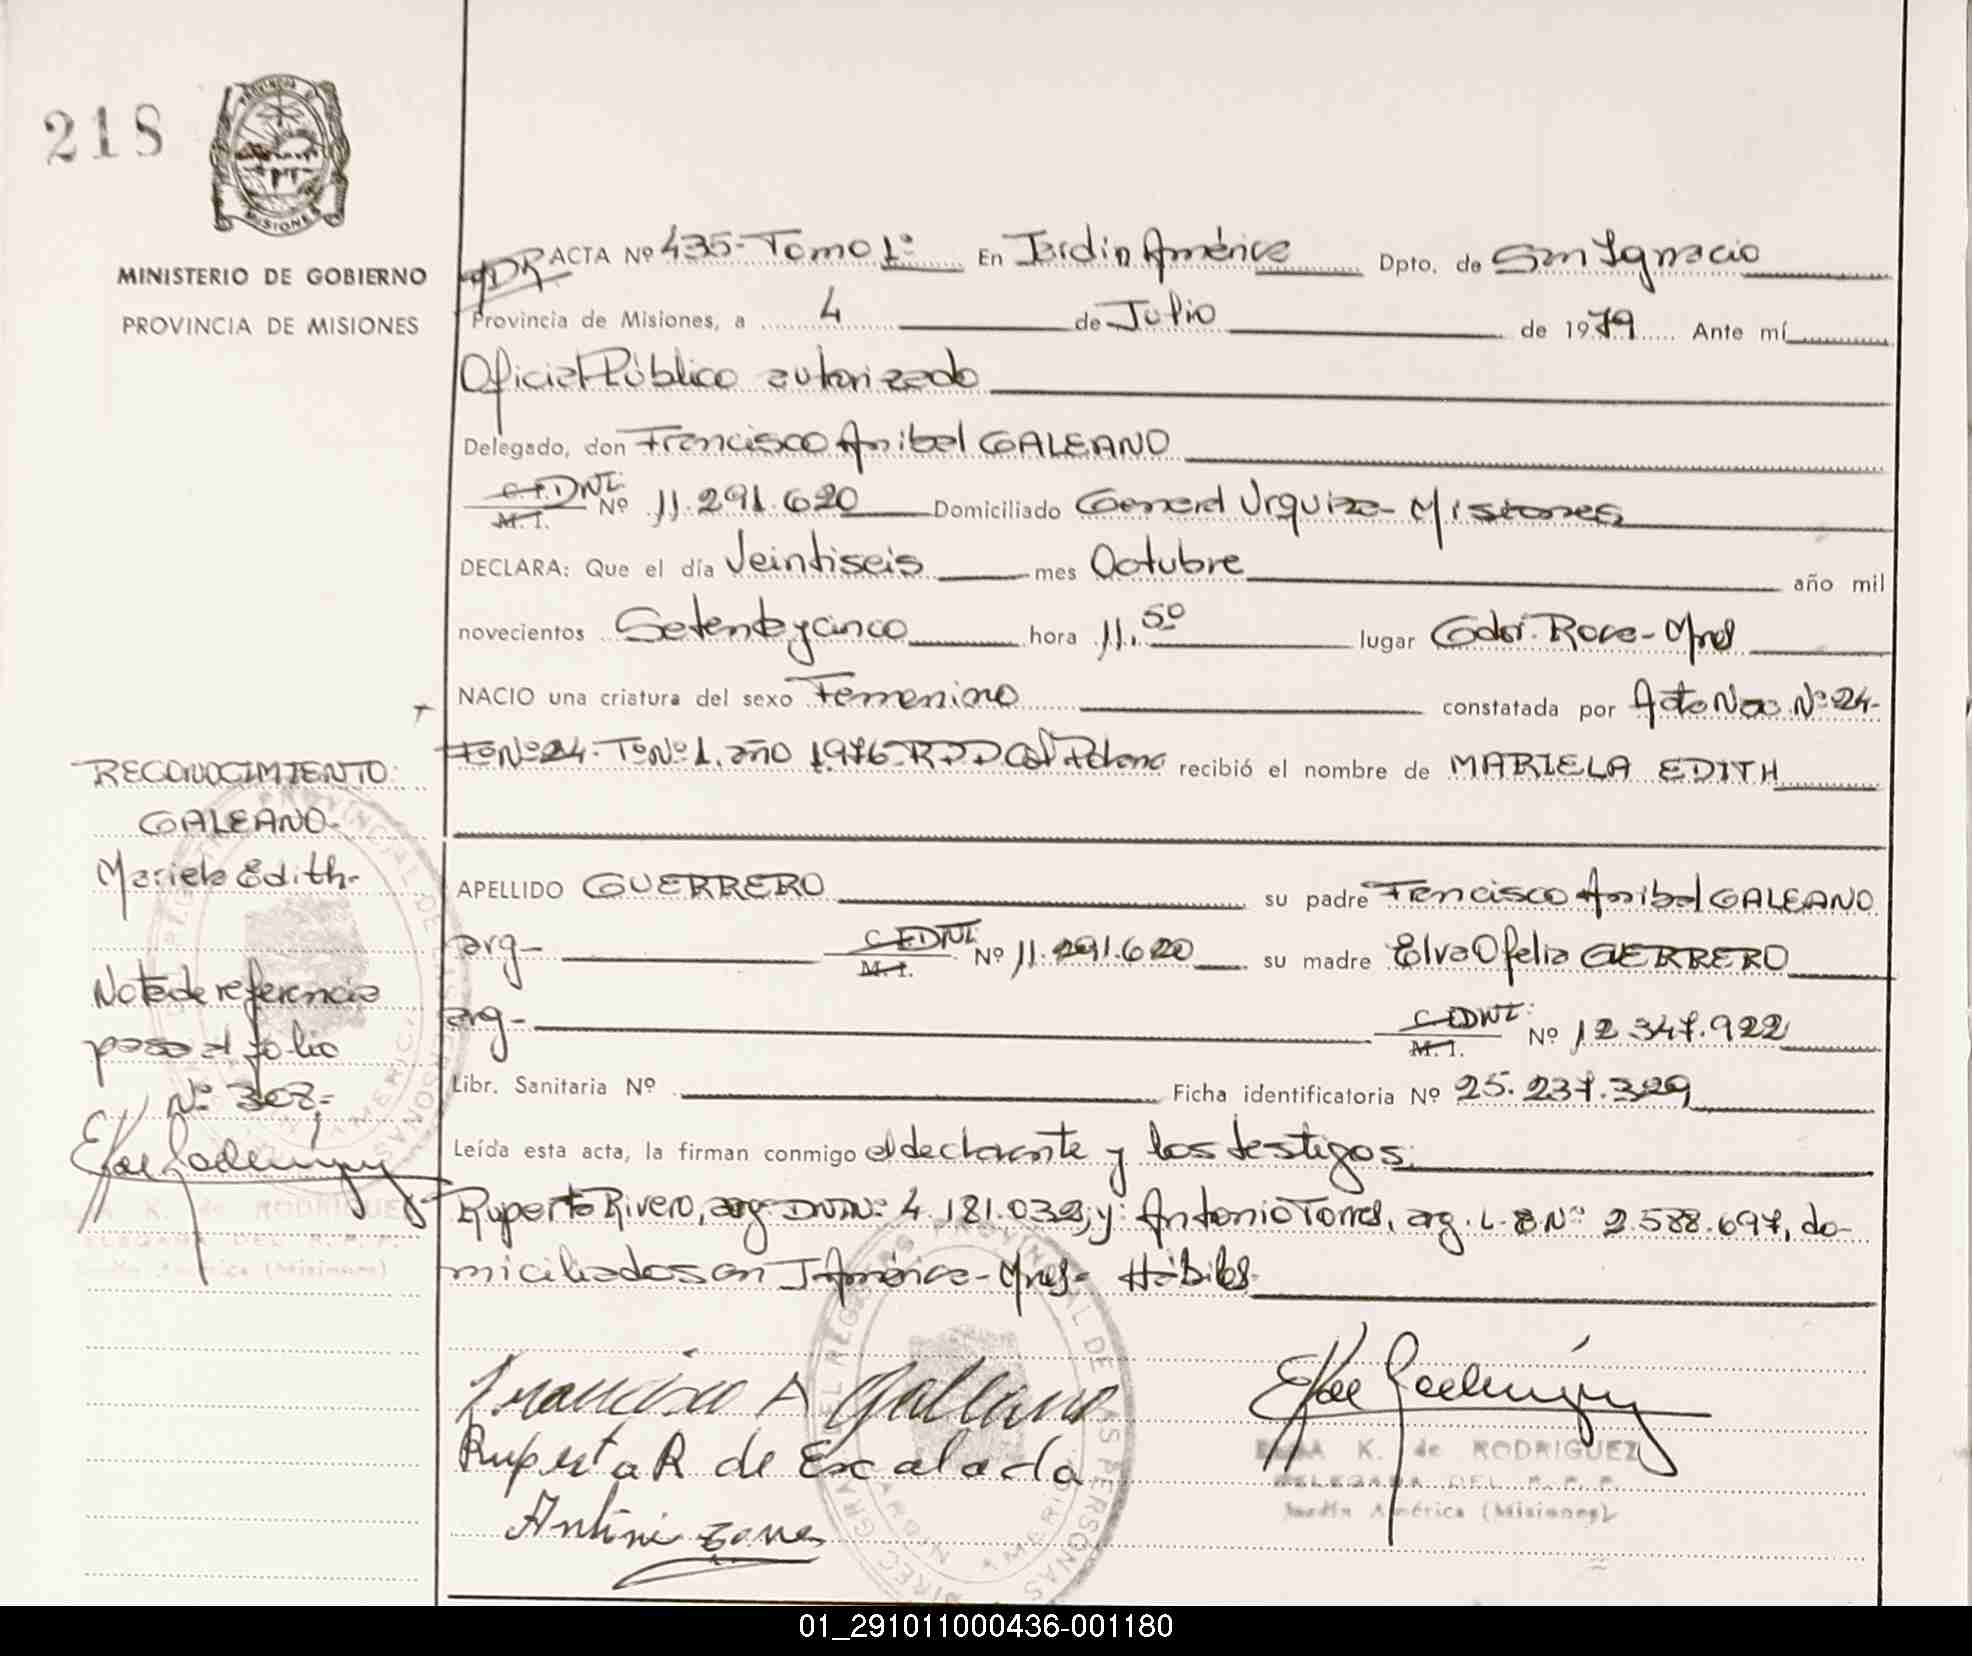 218
MISIONES
MINISTERIO DE GOBIERNO
PROVINCIA DE MISIONES
ACTA Nº 435-Tomo 1º En Jardín América Dpto. de San Ignacio
Provincia de Misiones, a 4 de Julio de 1979 Ante mí
Oficial Público autorizado
Delegado, don Francisco Anibal GALEANO
C.I. DNI M.I. Nº 11.291.620 Domiciliado General Urquiza-Misiones
DECLARA: Que el día Veintiseis mes Octubre año mil
novecientos Setenta y cinco hora 11,50 lugar Gdor. Roca-Mnes
NACIO una criatura del sexo Femenino constatada por Acta Nac. Nº 24-
Fº Nº 24. Tº Nº 1. año 1976-RPP recibió el nombre de MARIELA EDITH
APELLIDO GUERRERO su padre Francisco Anibal GALEANO
arg- C.I. DNI M.I. Nº 11.291.620 su madre Elva Ofelia GUERRERO
arg- C.I. DNI: M.I. Nº 12.347.922
Libr. Sanitaria Nº Ficha identificatoria Nº 25.237.329
Leída esta acta, la firman conmigo el declarante y los testigos.
Ruperto Rivero, arg DNI Nº 4.181.032, y: Antonio Torres, arg. L.E Nº 2.588.697, do-
miciliados en J. América-Mnes- Hábiles
RECONOCIMIENTO:
GALEANO-
Mariela Edith-
Nota de referencia
pasa al folio
Nº 308,-
K. de RODRIGUEZ
DELEGADA DEL R.P.P.
Jardín América (Misiones)
Francisco A Galeano
Ruperta R de Escalada
ELSA K. de RODRIGUEZ
DELEGADA DEL R.P.P.
Jardín América (Misiones)
01_291011000436-001180